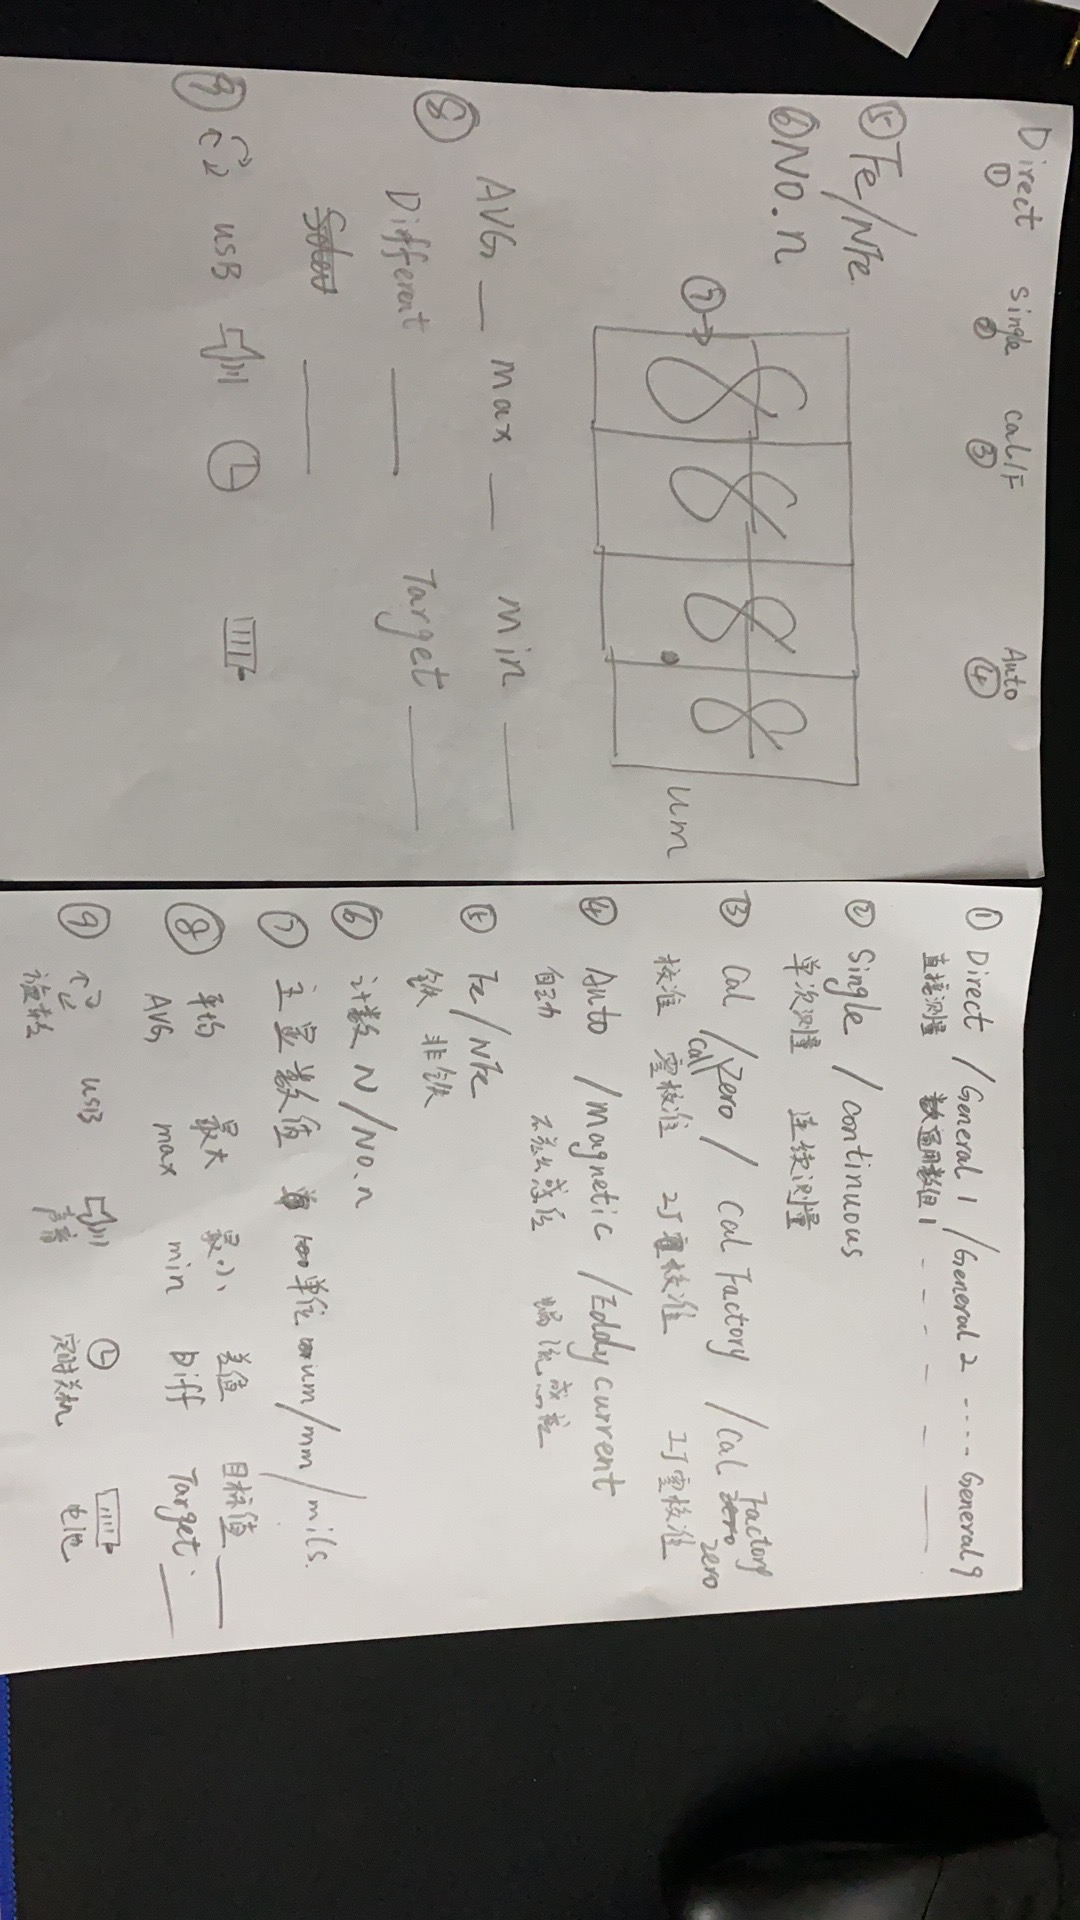 Direct Single cal/F Auto
① ② ③ ④
⑤ Fe/NFe
⑥ NO.n
⑦→ 8 8 8.8 um
⑧ AVG __ max __ min ____
Different ____ Target ____
____
⑨ USB
① Direct / General 1 / General 2 ---- General 9
直接测量 通用数组1 - - - - - ——
② Single / continuous
单次测量 连续测量
③ Cal / Zero Cal / Cal Factory / Cal Factory zero
校准 零校准 工厂校准 工厂零校准
④ Auto / Magnetic / Eddy current
自动 磁感应 涡流感应
⑤ Fe / NFe
铁 非铁
⑥ 计数 N / NO.n
⑦ 主显数值 单位 um/mm/mils.
⑧ 平均 最大 最小 差值 目标值 ____
AVG max min Diff Target: ____
⑨ USB
旋转 声音 定时关机 电池